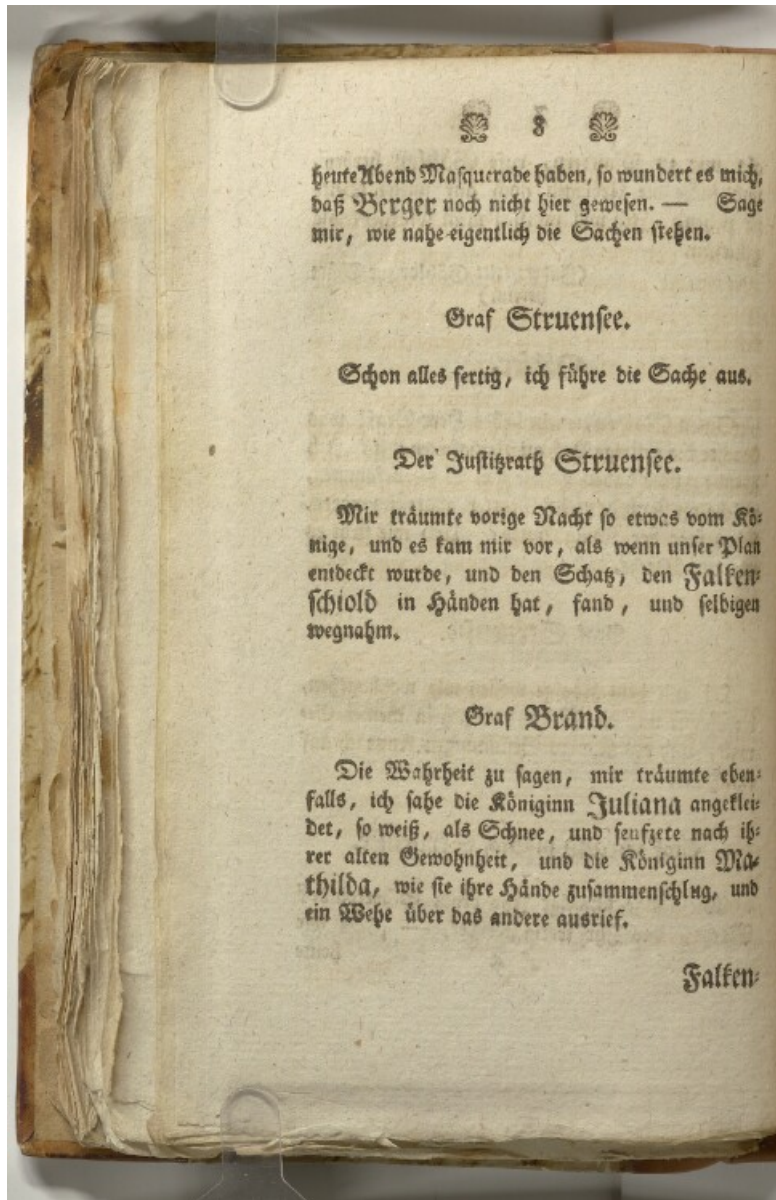 8
heute Abend Masquerade haben, so wundert es mich,
daß Berger noch nicht hier gewesen. — Sage
mir, wie nahe eigentlich die Sachen stehen.
Graf Struensee.
Schon alles fertig, ich führe die Sache aus.
Der Justitzrath Struensee.
Mir träumte vorige Nacht so etwas vom Kö-
nige, und es kam mir vor, als wenn unser Plan
entdeckt wurde, und den Schatz, den Falken-
schiold in Händen hat, fand, und selbigen
wegnahm.
Graf Brand.
Die Wahrheit zu sagen, mir träumte eben-
falls, ich sahe die Königinn Juliana angeklei-
det, so weiß, als Schnee, und seufzete nach ih-
rer alten Gewohnheit, und die Königinn Ma-
thilda, wie sie ihre Hände zusammenschlug, und
ein Wehe über das andere ausrief.
Falken-